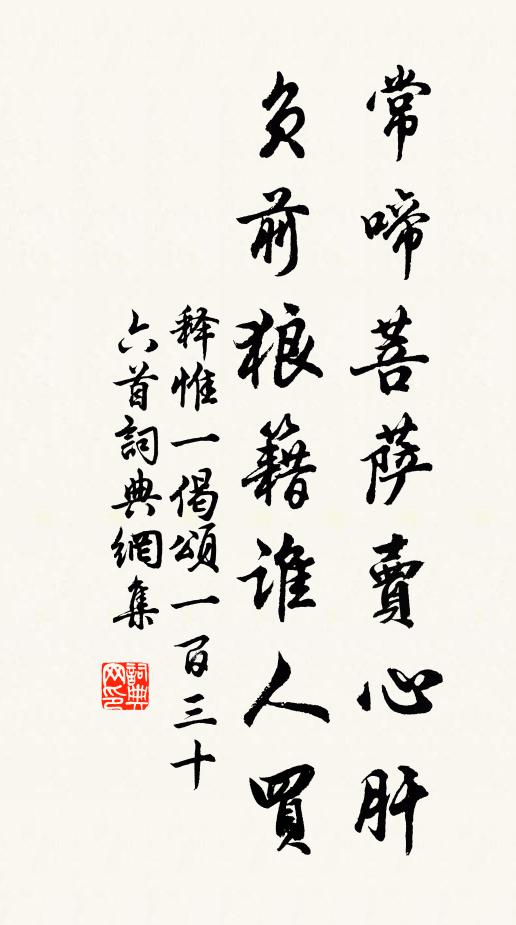 常啼菩萨賣心肝
负前狼籍谁人買
释惟一偈頌一百三十
六首詞典網集
詞典网印